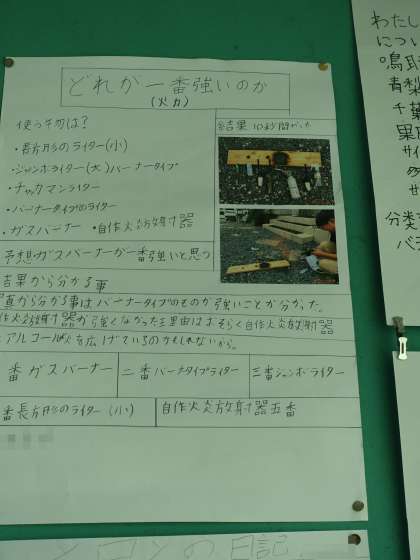 どれが一番強いのか
(火力)
使う物は?
・長方形のライター(小)
・ジャンボライター(大)バーナータイプ
・チャッカマンライター
・バーナータイプのライター
・ガスバーナー ・自作火炎放射器
予想ガスバーナーが一番強いと思う
結果 10秒間かった
結果から分かる事
写真から分かる事はバーナータイプのものが強いことが分かった。
作火炎放射器が強くなかった理由はおそらく自作火炎放射器
アルコールが火を広げているのかもしれないから。
番ガスバーナー
二番バーナータイプライター
三番ジャンボライター
番長方形のライター(小)
自作火炎放射器五番
メロンの日記
わたし
につい
鳥取
青梨
千葉
果
サイ
分類
バラ